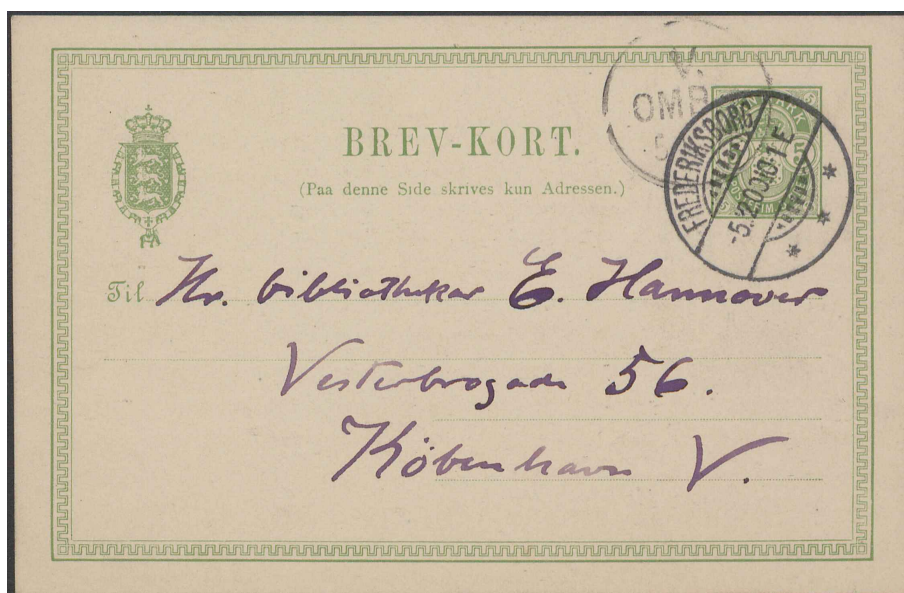 V.
OMB.
5
BREV-KORT.
(Paa denne Side skrives kun Adressen.)
FREDERIKSBORG
-5.2.00
Til Hr. bibliothekar E. Hannover
Vesterbrogade 56.
København V.